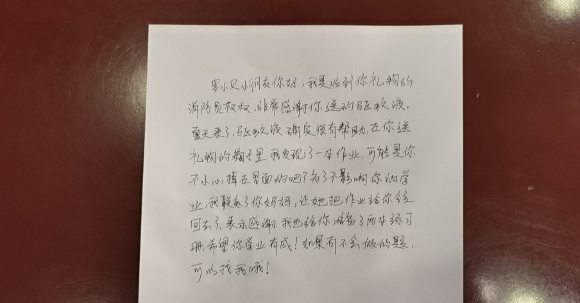 罗小贝小朋友你好，我是收到你礼物的
消防员叔叔，非常感谢你送的驱蚊液，
夏天来了，驱蚊液确实很有帮助，在你送
礼物的箱子里我发现了一本作业，可能是你
不小心掉在里面的吧？为了不影响你的学
业，我联系了你妈妈，让她把作业给你送
回去了，表示感谢，我也给你准备了两本练习
册，希望你学业有成！如果有不会做的题，
可以找我哦！